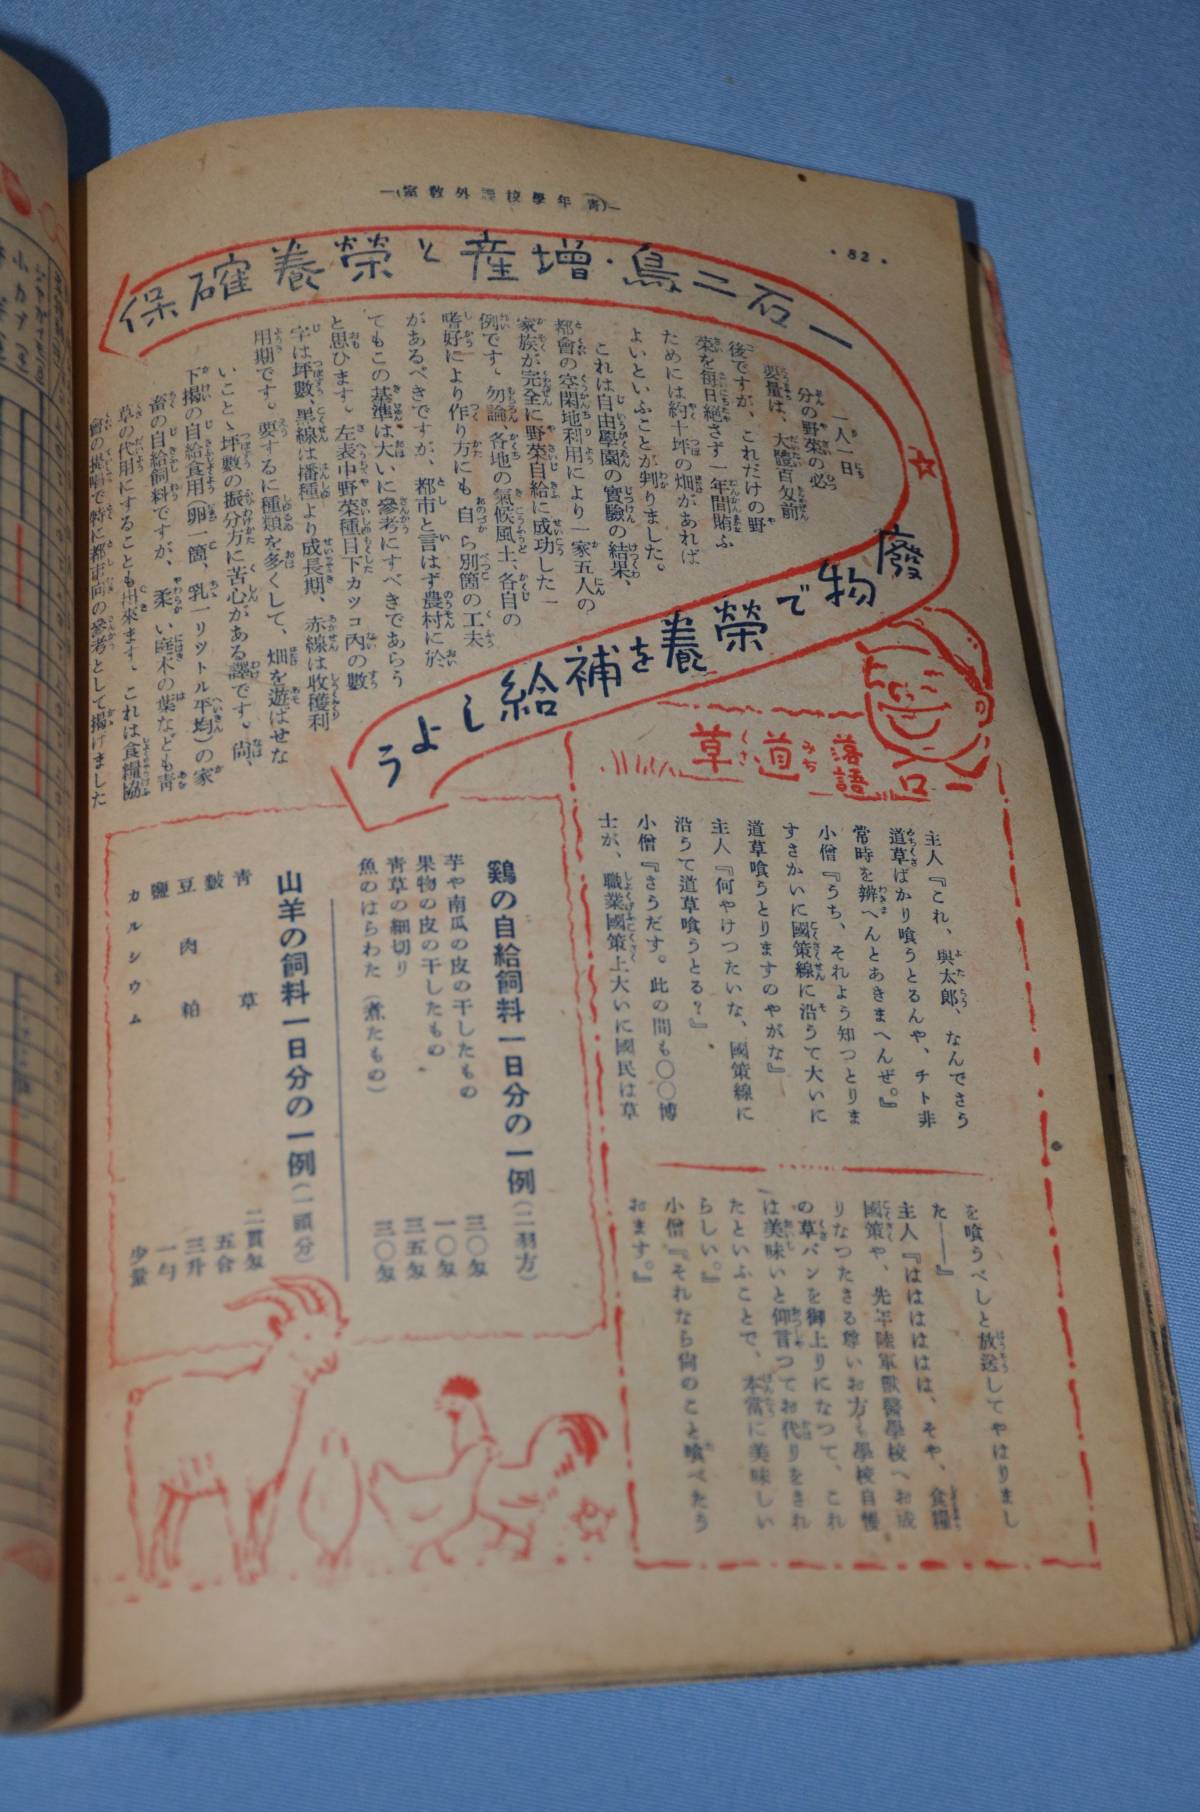 —(靑年學校課外敎室)—
・82・
一石二鳥・增產と榮養確保
廢物で榮養を補給しよう
一人一日
分の野菜の必
要量は、大體百匁前
後ですが、これだけの野
菜を每日絕さず一年間賄ふ
ためには約十坪の畑があれば
よいといふことが判りました。
これは自由學園の實驗の結果、
都會の空閑地利用により一家五人の
家族が完全に野菜自給に成功した一
例です。勿論、各地の氣候風土、各自の
嗜好により作り方にも自ら別箇の工夫
があるべきですが、都市と言はず農村に於
てもこの基準は大いに參考にすべきであらう
と思ひます。左表中野菜種目下カッコ內の數
字は坪數、黑線は播種より成長期、赤線は收穫利
用期です。要するに種類を多くして、畑を遊ばせな
いこと、坪數の振分方に苦心がある譯です。尙、
下揭の自給食用(卵一箇、乳一リットル平均)の家
畜の自給飼料ですが、柔い庭木の葉なども靑
草の代用にすることも出來ます。これは食糧協
會の提唱で特に都市向の參考として揭げました
一口
落語
道草
みちくさ
主人『これ、與太郎、なんでさう
道草ばかり喰うとるんや、チト非
常時を辨へんとあきまへんぜ。』
小僧『うち、それよう知つとりま
すさかいに國策線に沿うて大いに
道草喰うとりますのやがな』
主人『何やけつたいな、國策線に
沿うて道草喰うとる?』
小僧『さうだす。此の間も〇〇博
士が、職業國策上大いに國民は草
を喰うべしと放送してやはりまし
た——』
主人『はははははは、そや、食糧
國策や、先年陸軍獸醫學校へお成
りなつたさる尊いお方が學校自慢
の草パンを御上りになつて、これ
は美味いと仰言つてお代りをされ
たといふことで、本當に美味しい
らしい。』
小僧『それなら尙のこと喰べたう
おます。』
鷄の自給飼料一日分の一例(二羽方)
芋や南瓜の皮の干したもの 三〇匁
果物の皮の干したもの 一〇匁
靑草の細切り 三五匁
魚のはらわた(煮たもの) 三〇匁
山羊の飼料一日分の一例(一頭分)
靑草 二貫匁
麩 五合
豆肉粕 三升
鹽 一勺
カルシウム 少量